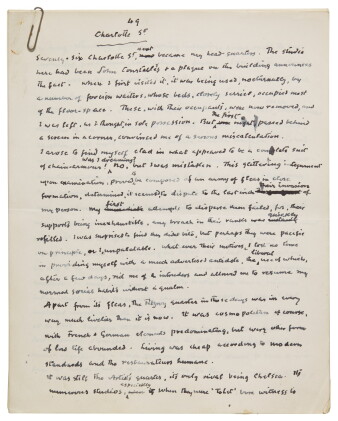 49
Charlotte St
Seventy-Six Charlotte St, next became my head quarters. The studio
here had been John Constable's & a plaque on the building announces
the fact. When I first visited it, it was being used, nocturnally, by
a number of foreign waiters, whose beds, closely serried, occupied most
of the floor-space. These, with their occupants, were now removed, and
I was left, as I thought, in sole possession. But the first night, passed behind
a screen in a corner, convinced me of a serious miscalculation.
I arose to find myself clad in what appeared to be a complete suit
of chain-armour! Was I dreaming? No, but I was mistaken. This glittering
upon examination, proved to be composed of an army of fleas in close
formation, determined, it seemed, to dispute to the last their invasion of
my person. My first attempts to disperse them failed, for, their
supports being inexhaustible, any breach in their ranks was quickly
refilled. I was
on principle, or I, unpalatable. What ever their motives, I lost no time
in providing myself with a much advertised antidote, the liberal use of which,
after a few days, rid me of the intruders and allowed me to resume my
normal social habits without a qualm.
Apart from its fleas, the Fitzroy quarter in those days was in every
way much livelier than it is now. It was cosmopolitan of course,
with French & German elements predominating, but every other form
of low life abounded. Living was cheap according to modern
standards and the restaurateurs humane.
It was still the Artists quarter, its only rival being Chelsea. Its
numerous studios, especially when they were "To let" bore witness to